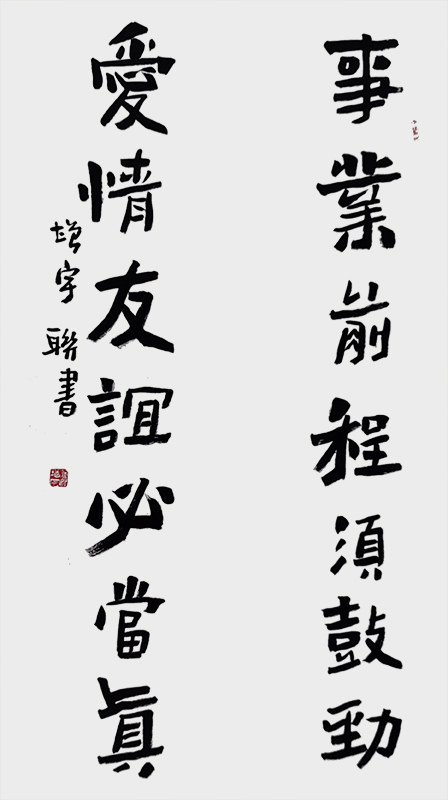 事業前程須鼓勁
愛情友誼必當真
增宇 聯書